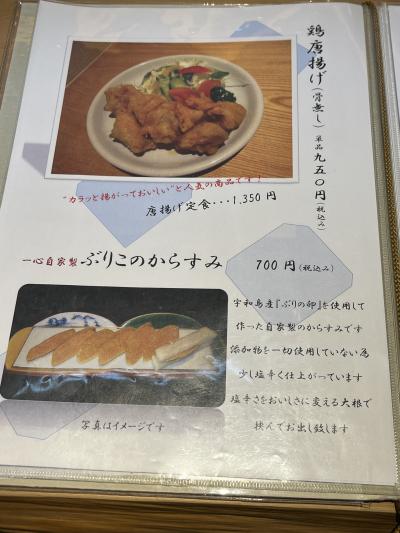 鶏唐揚げ(骨無し)単品九五〇円(税込み)
"カラッと揚がっておいしい"と人気の商品です!
唐揚げ定食・・・1,350円
一心自家製 ぶりこのからすみ 700円(税込み)
宇和島産『ぶりの卵』を使用して
作った自家製のからすみです
添加物を一切使用していない為
少し塩辛く仕上がっています
塩辛さをおいしさに変える大根で
挟んでお出し致します
写真はイメージです